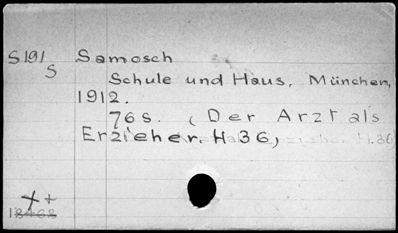 S191 Samosch
S
Schule und Haus. München,
1912.
76 s. (Der Arzt als
Erzieher. H 36)